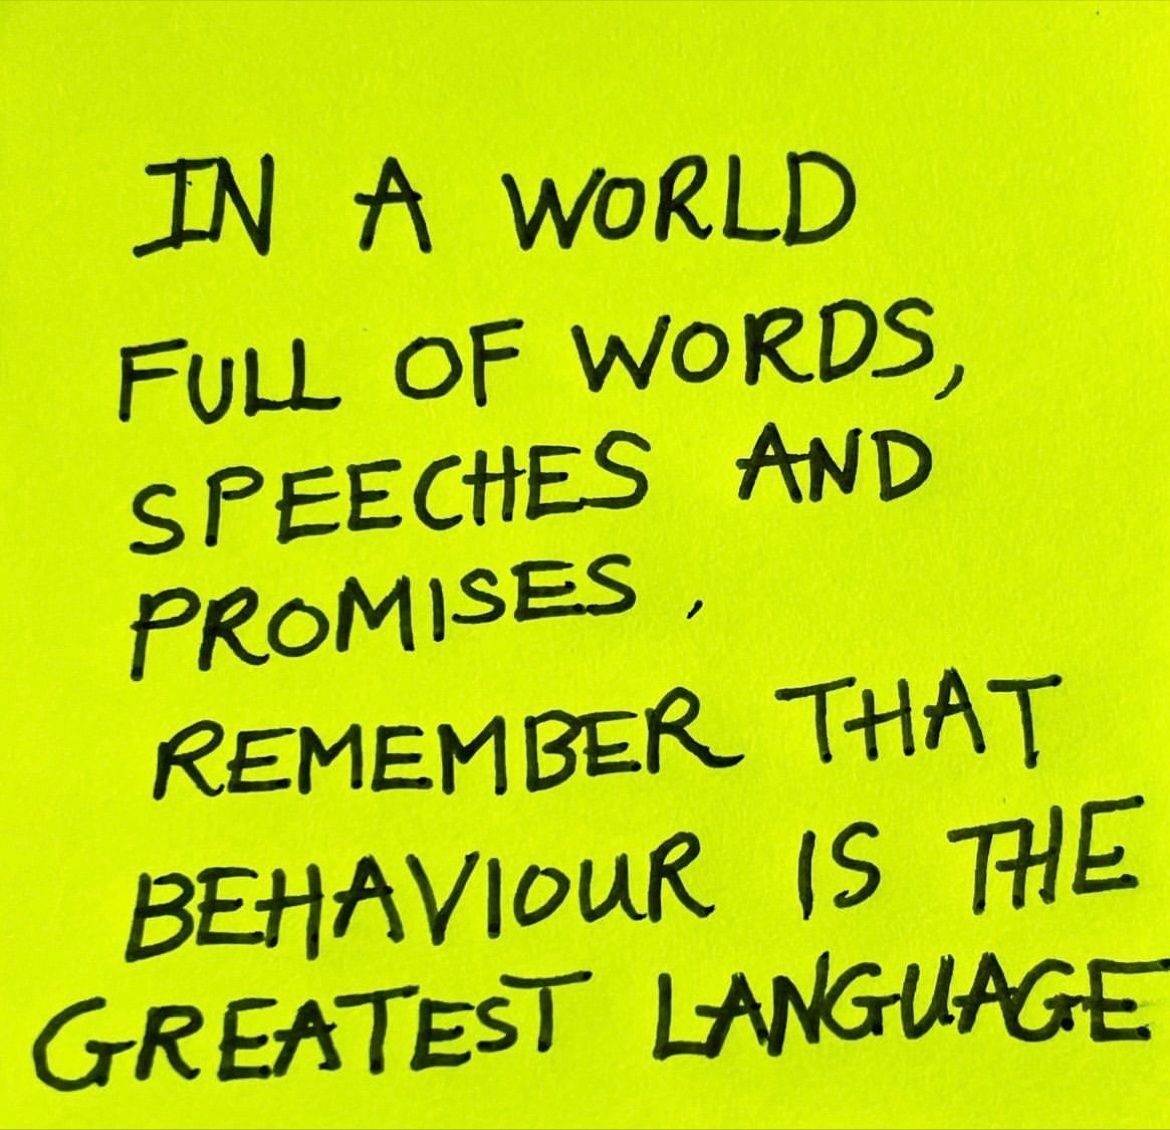 IN A WORLD
FULL OF WORDS,
SPEECHES AND
PROMISES,
REMEMBER THAT
BEHAVIOUR IS THE
GREATEST LANGUAGE